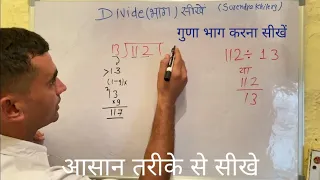 Divide (भाग) सीखें (Surendra Khilery)
गुणा भाग करना सीखें
13)112(
112 ÷ 13
>13
या
(1-9)x
112
13
13
x9
117
आसान तरीके से सीखे